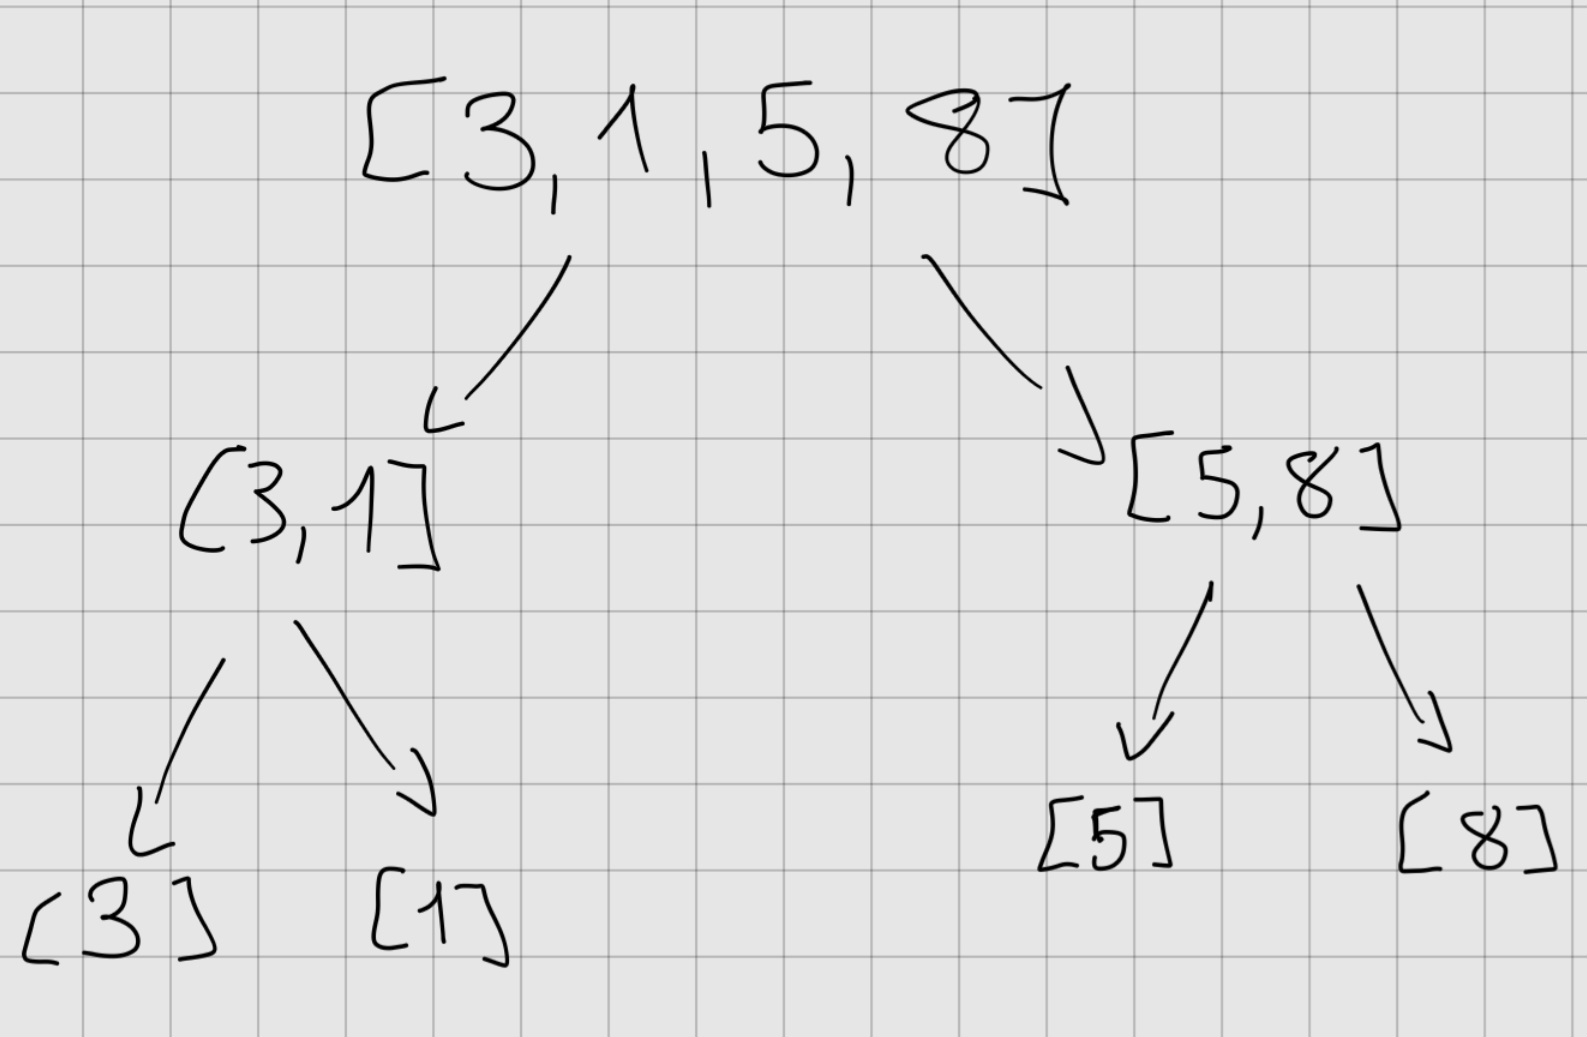 [3,1,5,8]
[3,1] [5,8]
[3] [1] [5] [8]